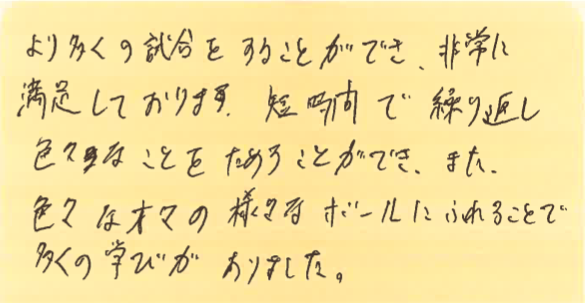 より多くの試合をすることができ、非常に
満足しております。短時間で繰り返し
色々なことをためすことができ、また、
色々な方々の様々なボールにふれることで
多くの学びがありました。